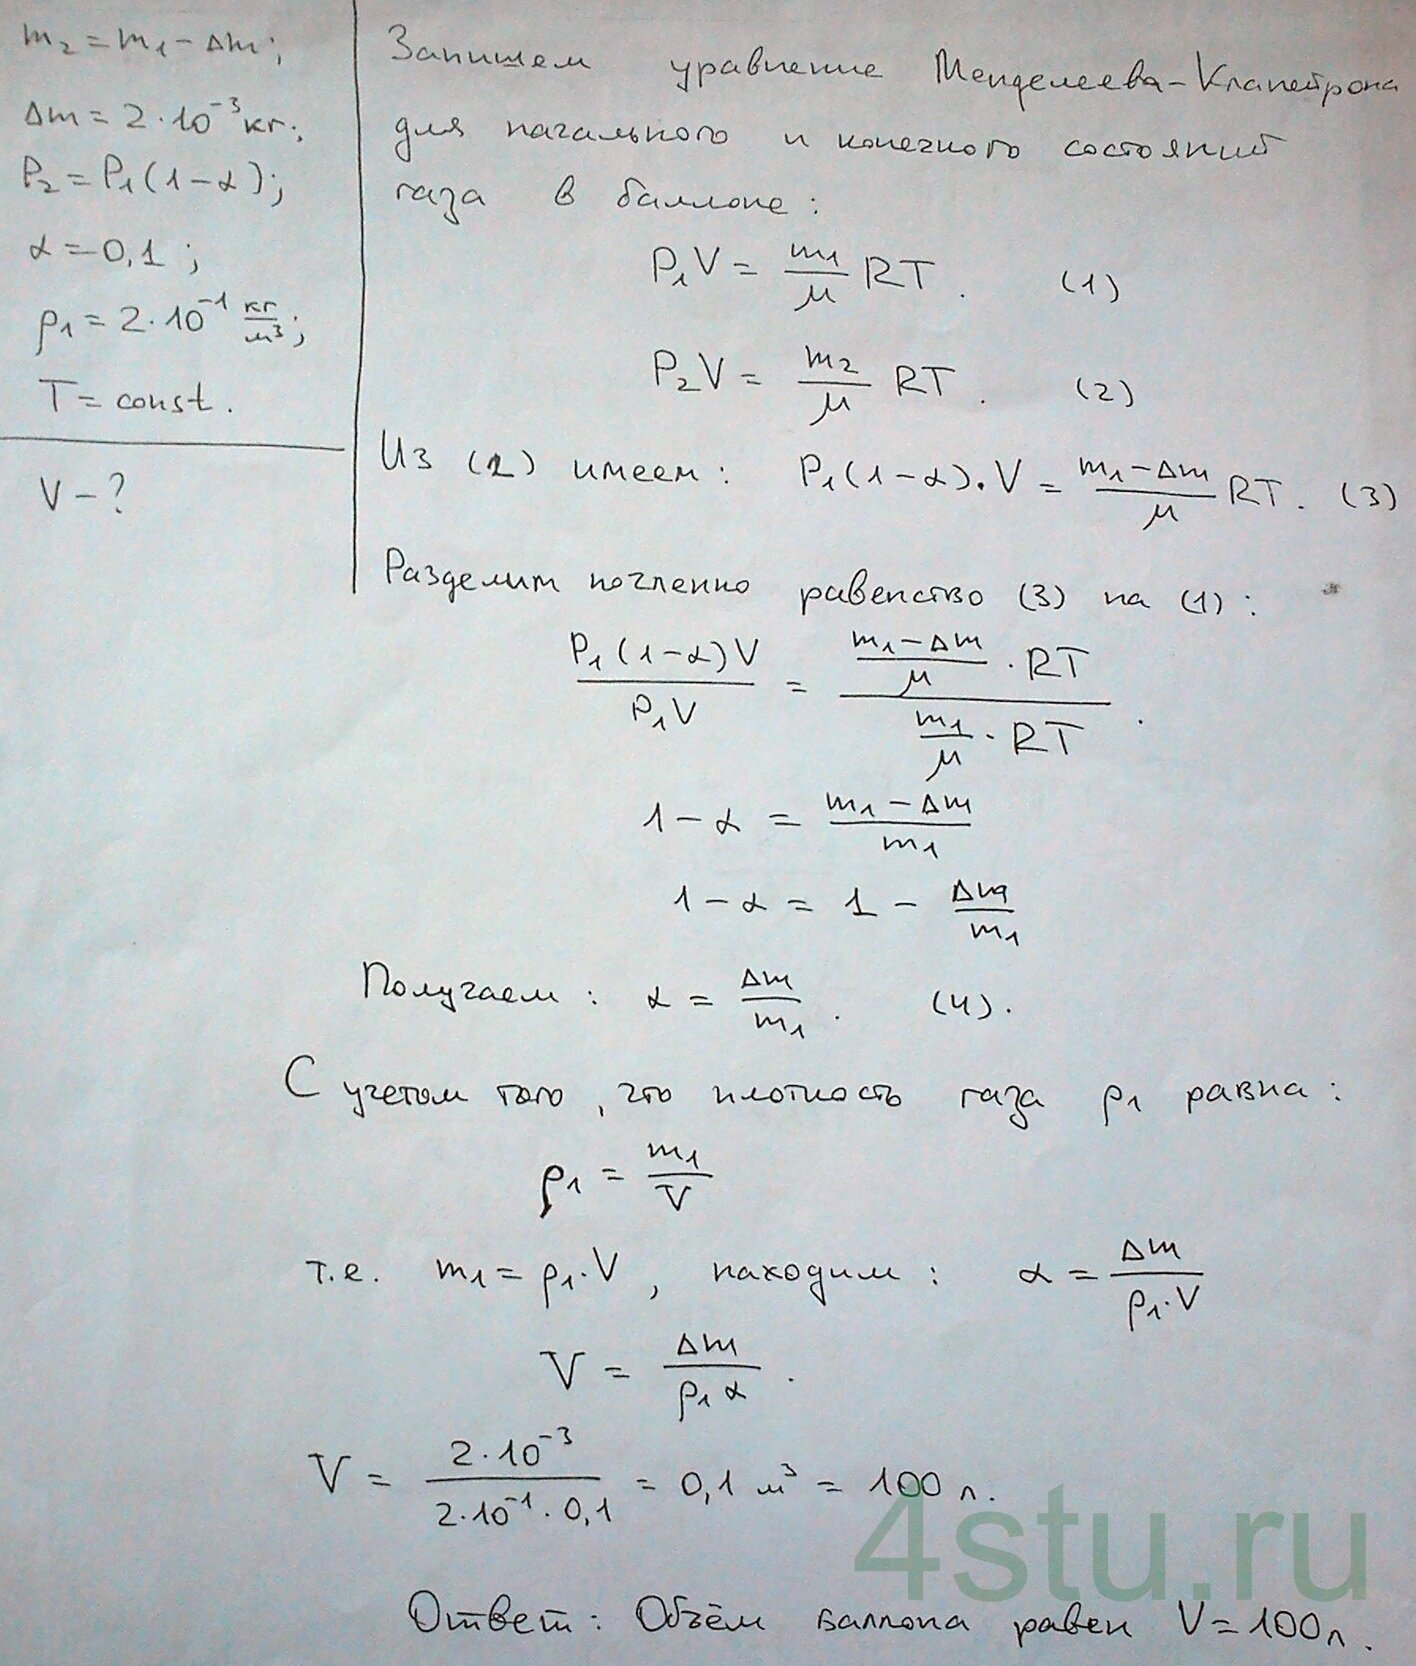 m₂ = m₁ - Δm;
Δm = 2·10⁻³ кг;
P₂ = P₁(1-α);
α = 0,1 ;
ρ₁ = 2·10⁻¹ кг/м³;
T = const.
V - ?
Запишем уравнение Менделеева-Клапейрона
для начального и конечного состояний
газа в баллоне:
P₁V = m₁/μ RT. (1)
P₂V = m₂/μ RT. (2)
Из (2) имеем: P₁(1-α)·V = (m₁-Δm)/μ RT. (3)
Разделим почленно равенство (3) на (1):
P₁(1-α)V / P₁V = ((m₁-Δm)/μ · RT) / (m₁/μ · RT).
1-α = (m₁-Δm)/m₁
1-α = 1 - Δm/m₁
Получаем: α = Δm/m₁. (4).
С учетом того, что плотность газа ρ₁ равна:
ρ₁ = m₁/V
т.е. m₁ = ρ₁·V, находим: α = Δm/(ρ₁·V)
V = Δm/(ρ₁α).
V = 2·10⁻³/(2·10⁻¹·0,1) = 0,1 м³ = 100 л.
4stu.ru
Ответ: Объём баллона равен V = 100 л.